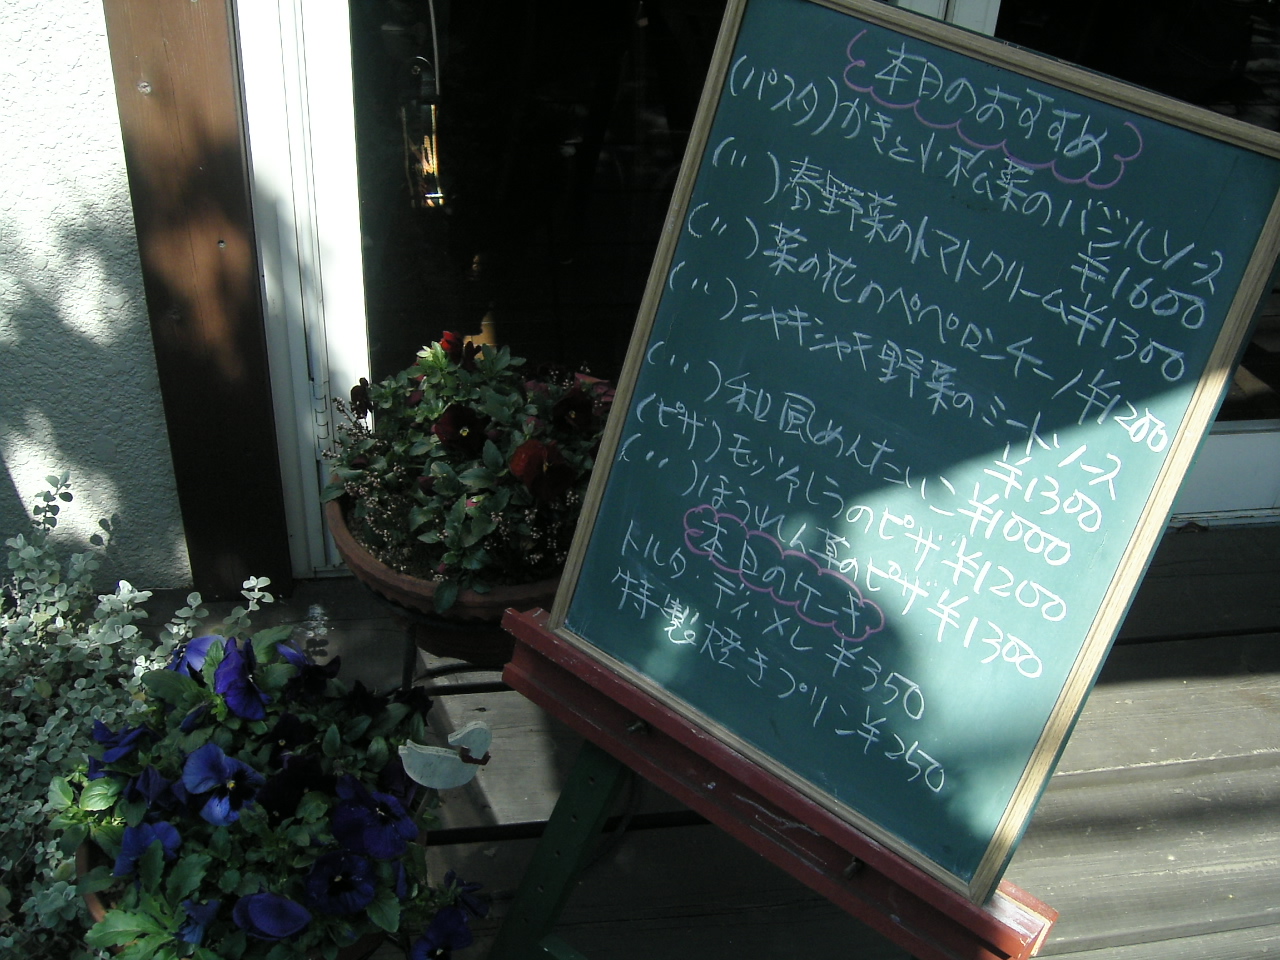 本日のおすすめ
(パスタ)かきと小松菜のバジルソース
¥1600
(〃)春野菜のトマトクリーム¥1300
(〃)菜の花のペペロンチーノ¥1200
(〃)シャキシャキ野菜のミートソース
¥1300
(〃)和風めんたいこ¥1000
(ピザ)モッツァレラのピザ¥1200
(〃)ほうれん草のピザ¥1300
本日のケーキ
トルタ・ディ・メレ¥350
特製焼きプリン¥250